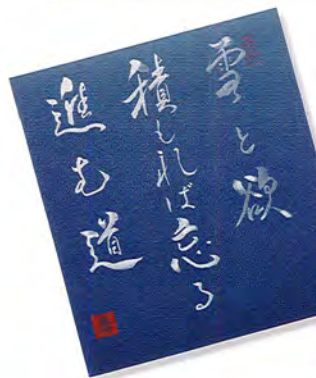 雪と欲
積もれば忘る
進む道